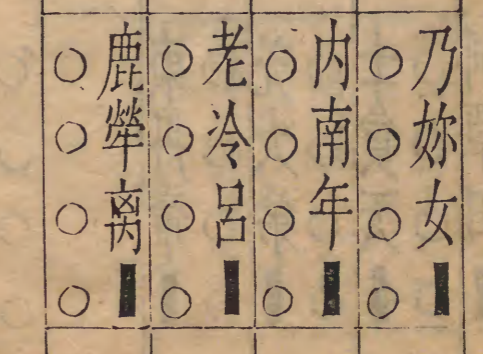 乃妳女▮
○○○○
内南年▮
○○○○
老冷呂▮
○○○○
鹿犖离▮
○○○○